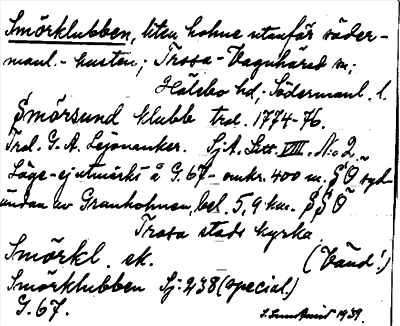 Smörklubben, liten holme utanför söder-
manl.- kusten; Trosa-Vagnhärad sn;
Hölebo hd; Södermanl. l.
Smörsund klubb trol. 1774-76.
Trol. G. A. Lejonanker. Sj.A. Sekt. VIII. No 2.
Läge - ej utmärkt å G.67 - omkr. 400 m. SO syd-
ändan av Granholmen, bel. 5,9 km. SSO
Trosa stads kyrka
Smörkl. sk. (Vänd!)
Smörklubben Sj: 238 (special)
G.67. 1939.